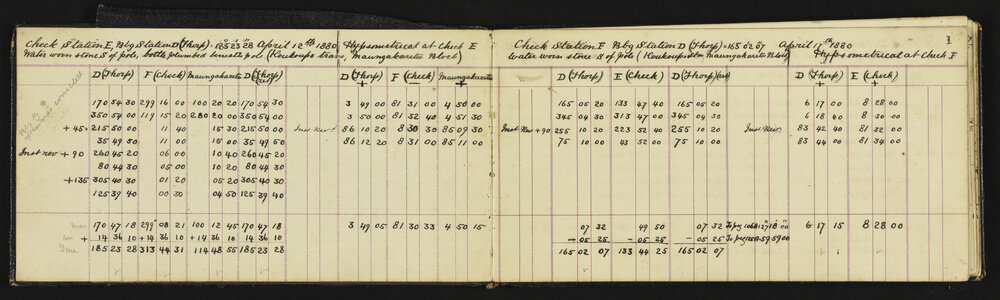 Check Station E, Bbg Station D (Thorp) = 185 23 28 April 12th 1880
Water worn stone S of pole, bottle plumbed beneath pole (Koukoupo trave, Maungakaretu Block)
Hypsometrical at Check E
D (Thorp) F (Check) Maungakaretu D (Thorp)
D (Thorp) F (Check) Maungakaretu
170 54 30 299 16 00 100 20 20 170 54 30 3 49 00 81 31 00 4 50 00
350 54 00 119 15 20 280 20 00 350 54 00 3 50 00 81 32 40 4 51 30
+ 45° 215 50 00 11 40 15 30 215 50 00 Inst Rev 86 10 20 8 30 30 85 09 30
35 49 50 11 00 15 00 35 49 50 86 12 20 8 31 00 85 11 00
Inst rev + 90 260 45 20 06 00 10 40 260 45 20
80 44 30 05 00 10 20 80 44 30
+135 305 40 30 01 20 05 20 305 40 30
125 39 40 00 30 04 50 125 39 40
170 47 18 299 08 21 100 12 45 170 47 18 3 49 05 81 30 33 4 50 15
+ 14 36 10 +14 36 10 +14 36 10 14 36 10
True 185 23 28 313 44 31 114 48 55 185 23 28
1
Check Station F Bbg Station D (Thorp) = 165 02 07 April 17th 1880
Water worn stone S of pole (Koukoupo Maungakaretu Block)
Hypsometrical at Check F
D (Thorp) E (Check) D (Thorp)
D (Thorp) E (Check)
165 05 20 133 47 40 165 05 20 6 17 00 8 28 00
345 04 30 313 47 00 345 04 30 6 18 40 8 30 00
Inst Rev + 90 255 10 20 223 52 40 255 10 20 Inst Rev 83 42 40 81 32 00
75 10 00 43 52 00 75 10 00 83 44 00 81 34 00
07 32 49 50 07 32 6 17 15 8 28 00
- 05 25 - 05 25 - 05 25
165 02 07 133 44 25 165 02 07